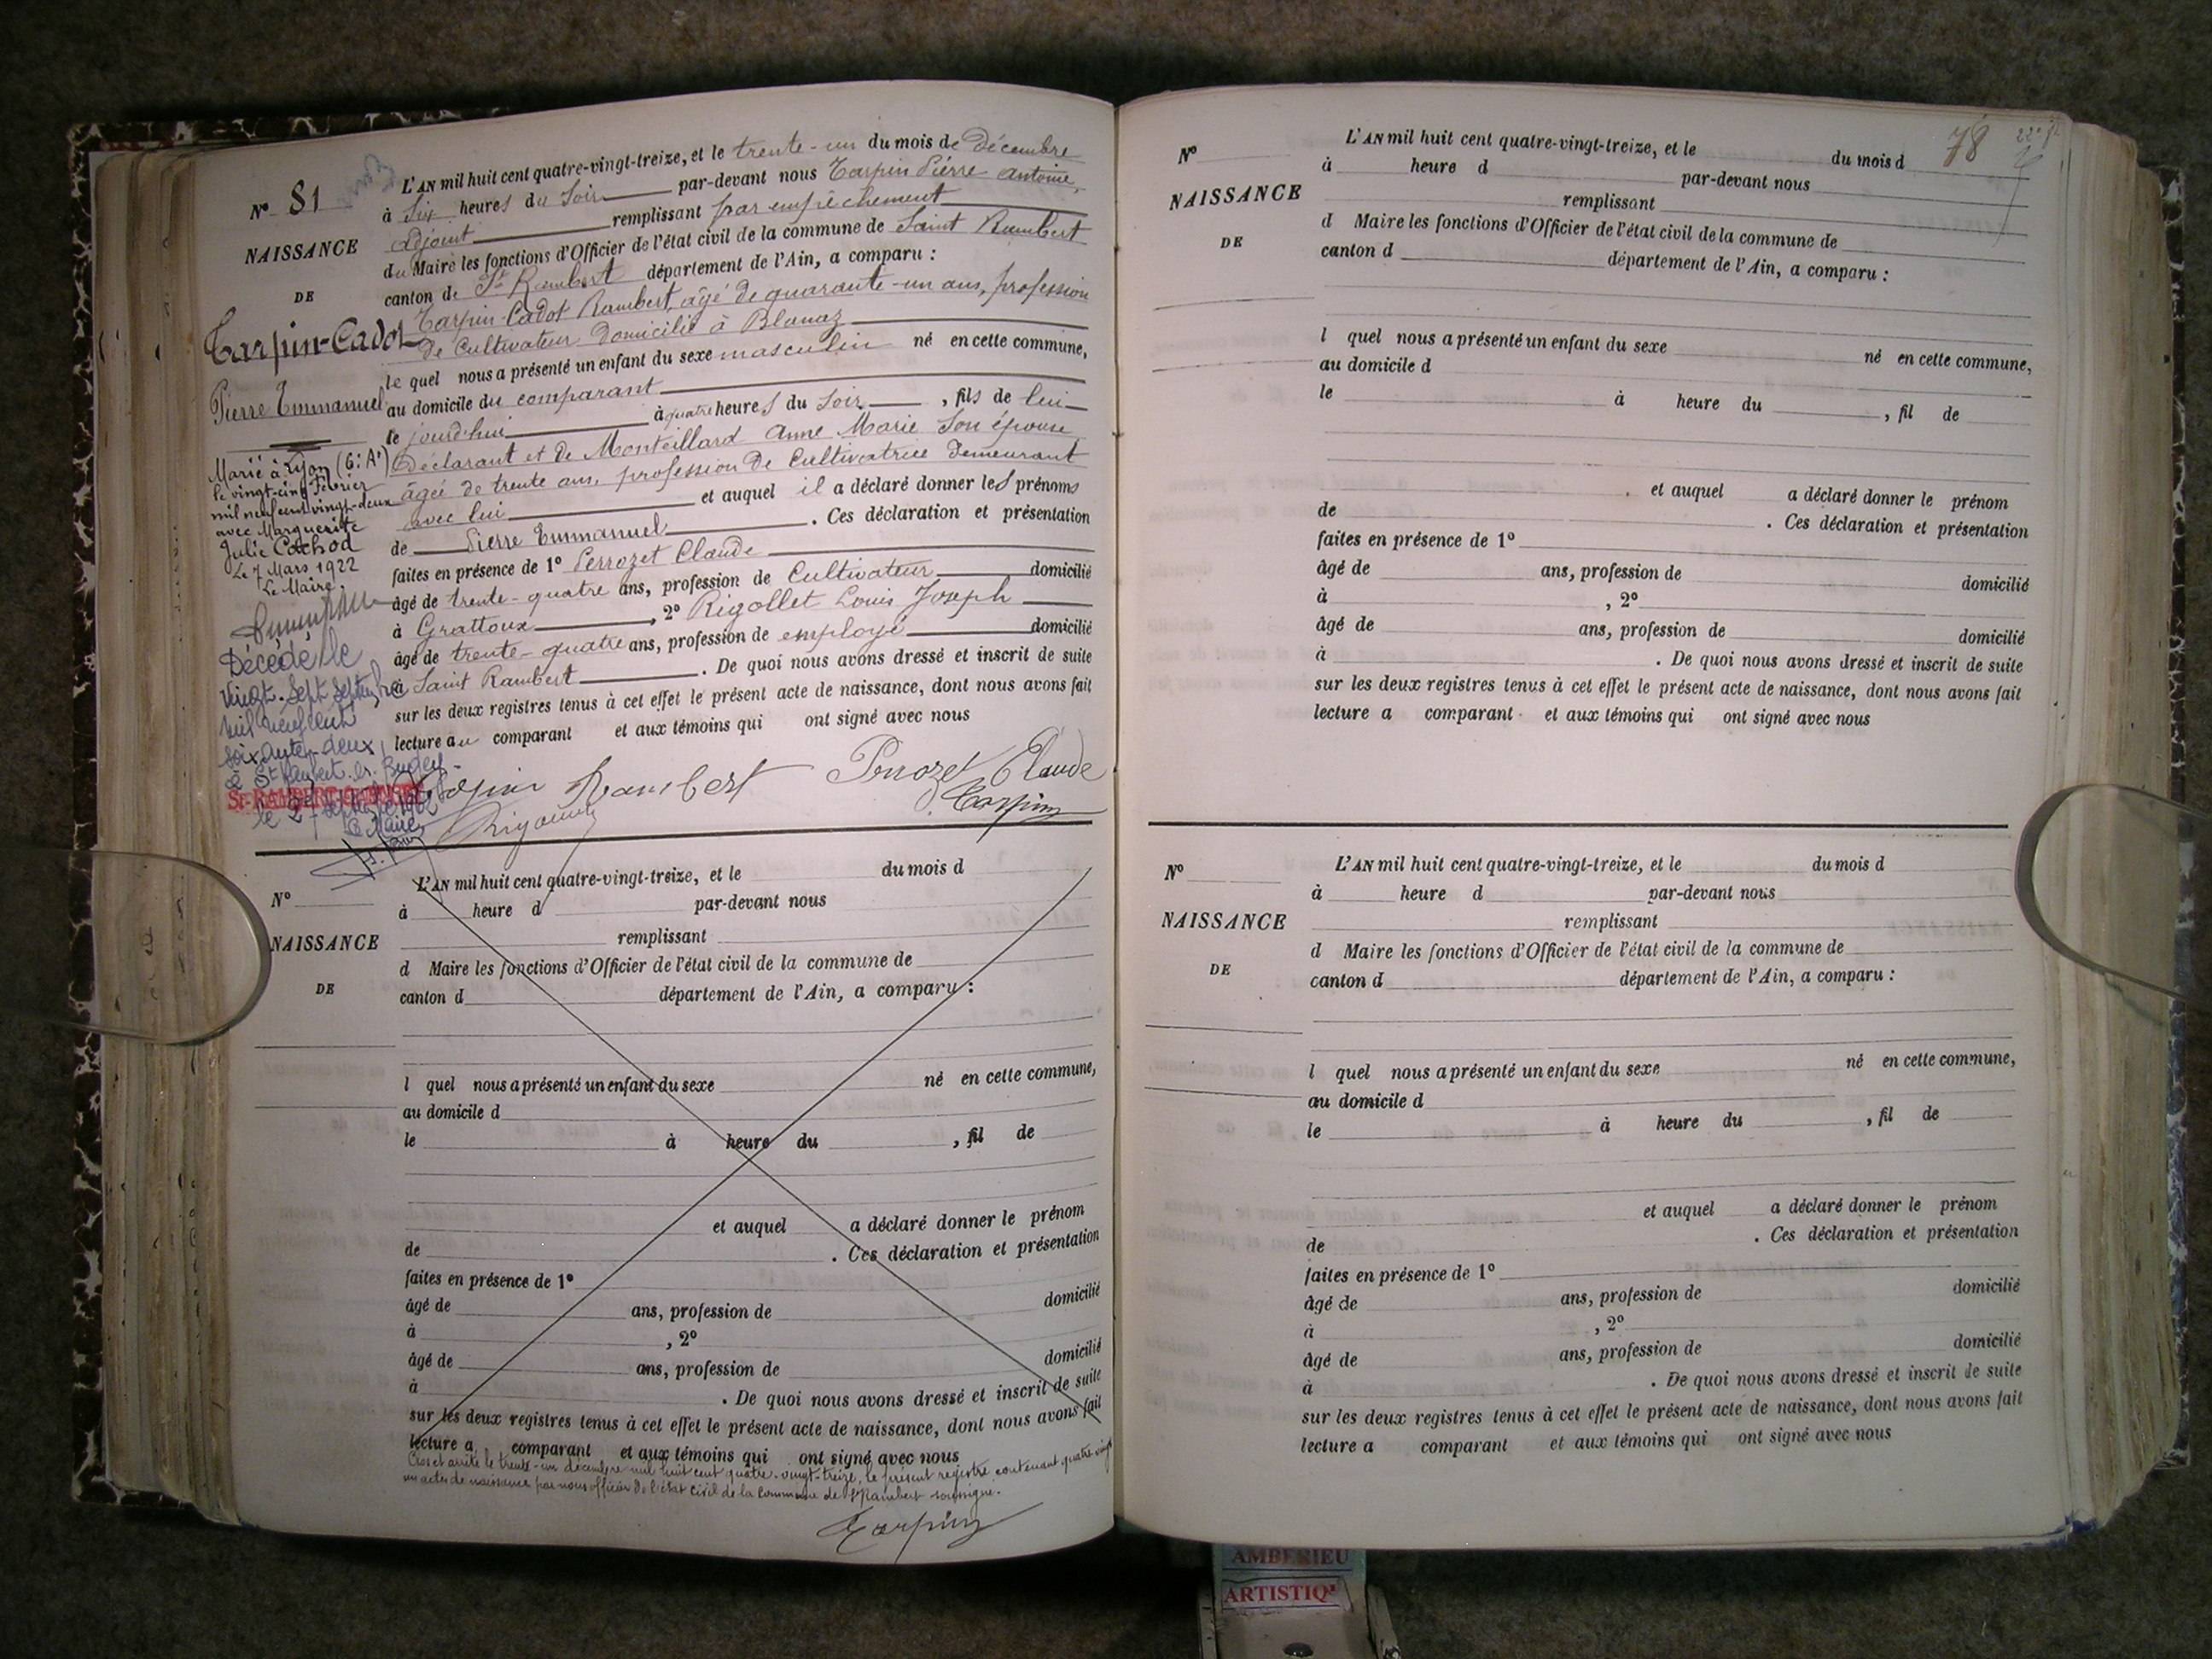 N° 81
NAISSANCE
DE
Tarpin-Cadot
Pierre Emmanuel
Marié à Lyon (6e Ar)
le vingt-cinq Février
mil neuf cent vingt-deux
avec Marguerite
Julie Cochod
Le 7 Mars 1922
Le Maire
Décédé le
vingt-sept septembre
mil neuf cent
soixante-deux
à St Rambert en Bugey
ST-RAMBERT-EN-BUGEY
le 27 septembre 1962
Le Maire
L'AN mil huit cent quatre-vingt-treize, et le trente-un du mois de Décembre
à Six heures du Soir par-devant nous Tarpin Pierre Antoine,
adjoint remplissant par empêchement
du Maire les fonctions d'Officier de l'état civil de la commune de Saint Rambert
canton de St Rambert département de l'Ain, a comparu :
Tarpin-Cadot Rambert, âgé de quarante-un ans, profession
de Cultivateur Domicilié à Blanaz
le quel nous a présenté un enfant du sexe masculin né en cette commune,
au domicile du comparant
le jourd'hui à quatre heures du Soir, fils de lui
Déclarant et de Monteillard Anne Marie Son épouse
âgée de trente ans, profession de Cultivatrice Demeurant
avec lui et auquel il a déclaré donner les prénoms
de Pierre Emmanuel. Ces déclaration et présentation
faites en présence de 1° Perrozet Claude
âgé de trente-quatre ans, profession de Cultivateur domicilié
à Grattoux, 2° Rigollet Louis Joseph
âgé de trente-quatre ans, profession de employé domicilié
à Saint Rambert. De quoi nous avons dressé et inscrit de suite
sur les deux registres tenus à cet effet le présent acte de naissance, dont nous avons fait
lecture au comparant et aux témoins qui ont signé avec nous
Tarpin Rambert Perrozet Claude
Tarpin
N°
NAISSANCE
DE
L'AN mil huit cent quatre-vingt-treize, et le du mois d
à heure d par-devant nous
remplissant
d Maire les fonctions d'Officier de l'état civil de la commune de
canton d département de l'Ain, a comparu :
l quel nous a présenté un enfant du sexe né en cette commune,
au domicile d
le à heure du , fil de
et auquel a déclaré donner le prénom
de . Ces déclaration et présentation
faites en présence de 1°
âgé de ans, profession de domicilié
à , 2°
âgé de ans, profession de domicilié
à . De quoi nous avons dressé et inscrit de suite
sur les deux registres tenus à cet effet le présent acte de naissance, dont nous avons fait
lecture a comparant et aux témoins qui ont signé avec nous
Clos et arrêté le trente-un décembre mil huit cent quatre-vingt-treize, le présent registre contenant quatre-vingt
un actes de naissance par nous officier de l'état civil de la Commune de St Rambert soussigné.
Tarpin
78
N°
NAISSANCE
DE
L'AN mil huit cent quatre-vingt-treize, et le du mois d
à heure d par-devant nous
remplissant
d Maire les fonctions d'Officier de l'état civil de la commune de
canton d département de l'Ain, a comparu :
l quel nous a présenté un enfant du sexe né en cette commune,
au domicile d
le à heure du , fil de
et auquel a déclaré donner le prénom
de . Ces déclaration et présentation
faites en présence de 1°
âgé de ans, profession de domicilié
à , 2°
âgé de ans, profession de domicilié
à . De quoi nous avons dressé et inscrit de suite
sur les deux registres tenus à cet effet le présent acte de naissance, dont nous avons fait
lecture a comparant et aux témoins qui ont signé avec nous
N°
NAISSANCE
DE
L'AN mil huit cent quatre-vingt-treize, et le du mois d
à heure d par-devant nous
remplissant
d Maire les fonctions d'Officier de l'état civil de la commune de
canton d département de l'Ain, a comparu :
l quel nous a présenté un enfant du sexe né en cette commune,
au domicile d
le à heure du , fil de
et auquel a déclaré donner le prénom
de . Ces déclaration et présentation
faites en présence de 1°
âgé de ans, profession de domicilié
à , 2°
âgé de ans, profession de domicilié
à . De quoi nous avons dressé et inscrit de suite
sur les deux registres tenus à cet effet le présent acte de naissance, dont nous avons fait
lecture a comparant et aux témoins qui ont signé avec nous
AMBERIEU
ARTISTIQ